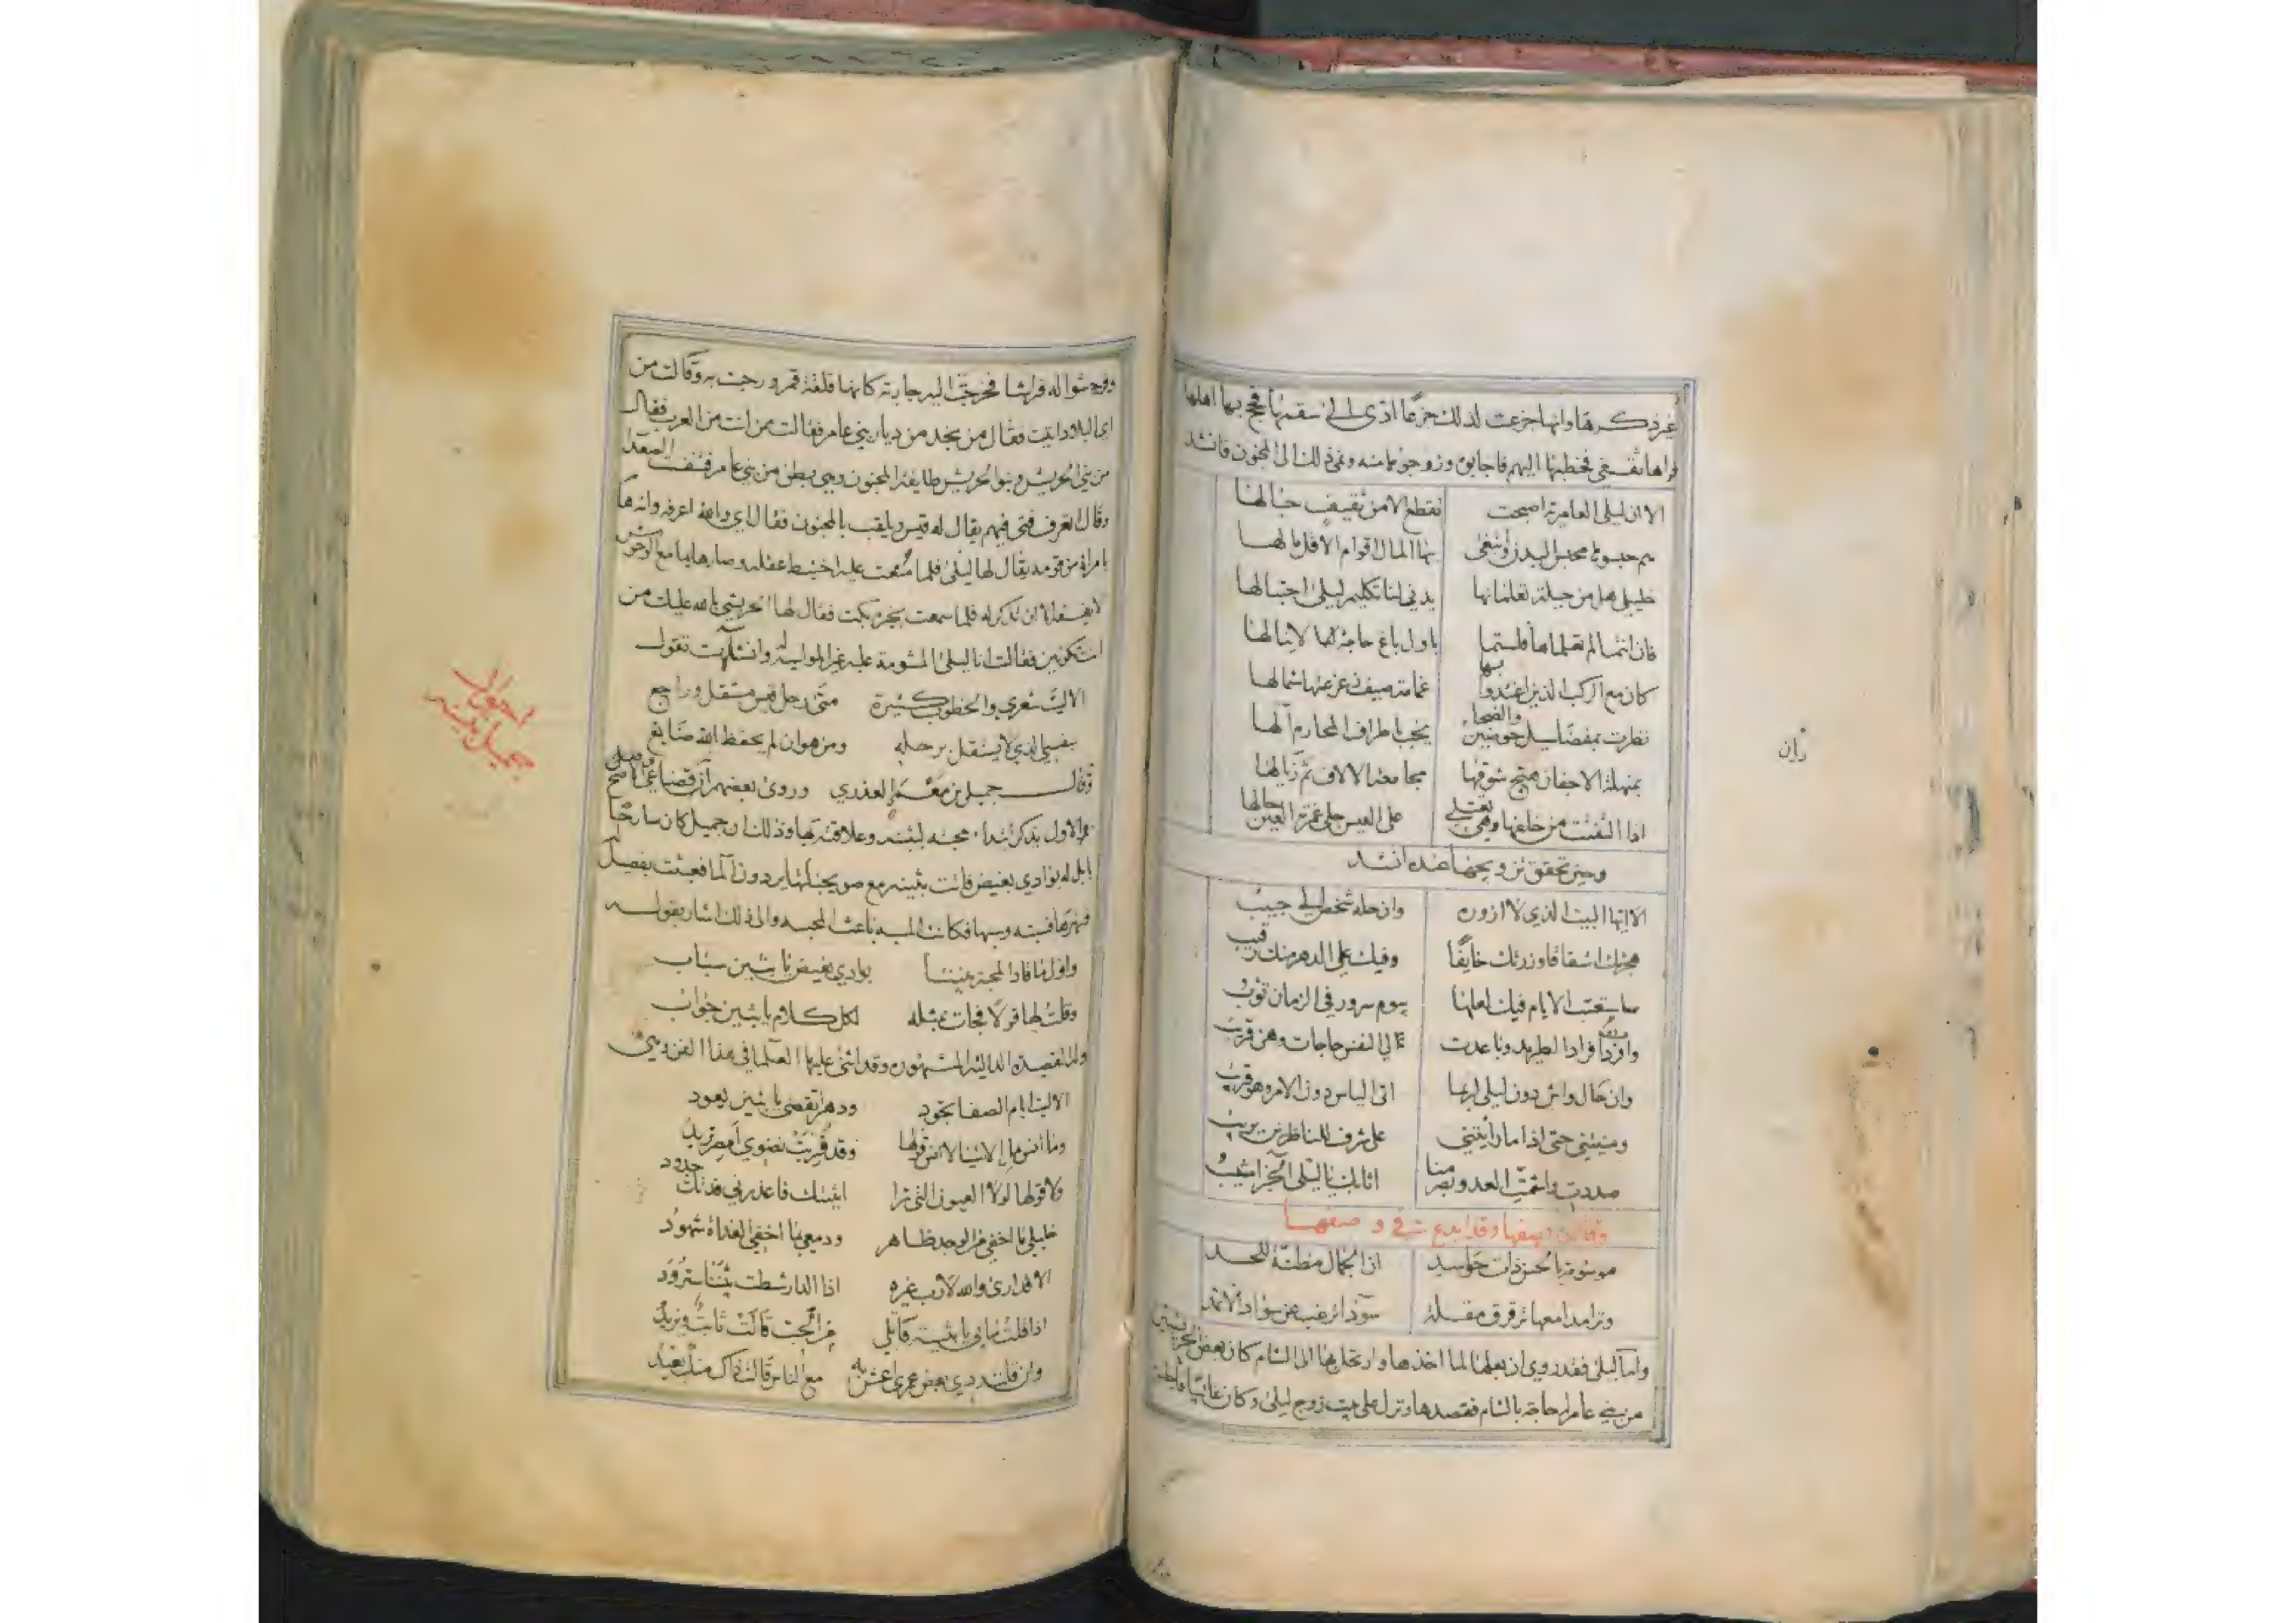 غير ذكرها وانها جزعت لذلك جزعا ادى الى سقمها فحج بها اهلها
فراها ثقفي فخطبها اليهم فاجابوه وزوجوها منه ونمى ذلك الى المجنون فانشد
الا ان ليلى العامرية اصبحت تقطع الا من ثقيف حبالها
هم حبسوها محبس البدن وابتغى بها المال اقوام الا قل مالها
خليلي هل من حيلة تعلمانها يدني لنا تكليم ليلى احتيالها
فان انتما لم تعلماها فلستما باول باغ حاجة لا ينالها
كان مع الركب الذين اغتدوا بها غمامة صيف زعزعتها شمالها
نظرت بمفضا سيل جوشن والضحى يخب باطراف المخارم آلها
بمنهلة الاجفان هيج شوقها مجامعة الالاف ثم زيالها
اذا التفتت من خلفها وهي تعتلي على العيس جلى عبرة العين حالها
وحين تحقق تزويجها عنده انشد
الا ايها البيت الذي لا ازوره وان حله شخص الي حبيب
هجرتك اشفاقا وزرتك خايفا وفيك على الدهر منك رقيب
ساستعتب الايام فيك لعلها بيوم سرور في الزمان تؤب
وافردت افراد الطريد وباعدت الى النفس حاجات وهن قريب
وان حال واش دون ليلى لربما اتى الياس دون الامر وهو قريب
ومنيتني حتى اذا ما رأيتني على شرف للناظرين يريب
صددت واشمت العدو بصرمنا اثابك يا ليلى الجزا مثيب
وقال يصفها وقد ابدع في وصفها
موسومة بالحسن ذات حواسد ان الجمال مظنة للحسد
وترى مدامعها ترقرق مقلة سودا ترغب عن سواد الاثمد
واما ليلى فقد روي ان بعلها لما اخذها وارتحل بها الى الشام كان بعض الحريشيين
من بني عامر له حاجة بالشام فقصدها ونزل على بيت زوج ليلى وكان غائبا
زان
وفرشوا له فراشا فخرجت اليه جارية كانها فلقة قمر ورحبت به وقالت من
اي البلاد اتيت فقال من نجد من ديار بني عامر فقالت ممن انت من العرب فقال
من بني الحريش وبنوا الحريش طايفة المجنون وهي بطن من بني عامر فتنفست الصعدا
وقال اتعرف فتى فيهم يقال له قيس ويلقب بالمجنون فقال اي والله اعرفه وانه هام
بامراة من قومه يقال لها ليلى فلما منعت عليه اختبط عقله وصار هايما مع الوحوش
لا يفيق الا ان تذكر له فلما سمعت بخبره بكت فقال لها الحريشي بالله عليك من
انت تكونين فقالت انا ليلى المشومة عليه غير المواسية له وانشأت تقول
الا ليت شعري والخطوب كثيرة متى رحل قيس مستقل وراجع
بنفسي الذي لا يستقل برحله ومن هو ان لم يحفظ الله ضايع
وقال جميل بن معمر العذري وروى بعضهم
الاول بتذكر ابتداء محبته لبثينة وعلاقته بها وذلك ان جميل كان سارحا
ابل له بوادي بغيض فاتت بثينة مع صويحباتها يردون الما فعبثت بفصيل
فنهرها فسبته وسبها فكانت المسبه باعث المحبه والى ذلك اشار بقوله
واول ما قاد المحبة بيننا بوادي بغيض يا بثين سباب
وقلت لها قولا فجات بمثله لكل كلام يا بثين جواب
وله القصيدة الدالية المشهوره وقد اثنى عليها العلما في هذا الفن وهي
الا ليت ايام الصفا تجود ودهر تقضى يا بثين يعود
وما انس م الاشيا لا انس قولها وقد قربت نضوي امصر تريد
ولا قولها لولا العيون التي ترا اتيتك فاعذرني فدتك جدود
خليلي ما اخفي من الوجد ظاهر ودمعي بما اخفي الغداة شهود
الا قد ارى والله لا رب غيره اذا الدار شطت بيننا سترود
اذا قلت ما بي يا بثينة قاتلي من الحب قالت ثابت ويزيد
وان قلت ردي بعض عمري اعش به مع الناس قالت ذاك منك بعيد
احوال
جميل بثينة